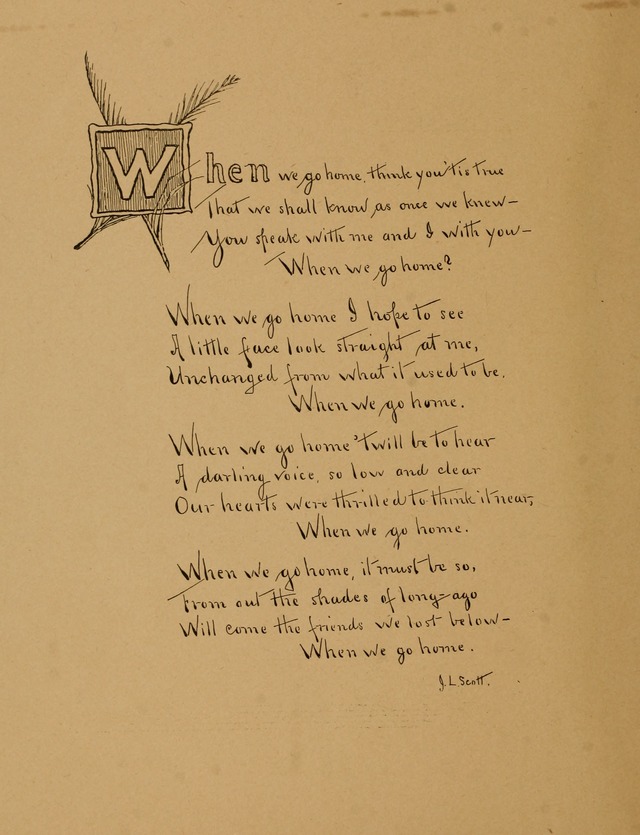 When we go home, think you 'tis true
That we shall know, as once we knew—
You speak with me and I with you—
When we go home?
When we go home I hope to see
A little face look straight at me,
Unchanged from what it used to be,
When we go home.
When we go home 'twill be to hear
A darling voice, so low and clear
Our hearts were thrilled to think it near,
When we go home.
When we go home, it must be so,
From out the shades of long-ago
Will come the friends we lost below—
When we go home.
J. L. Scott.